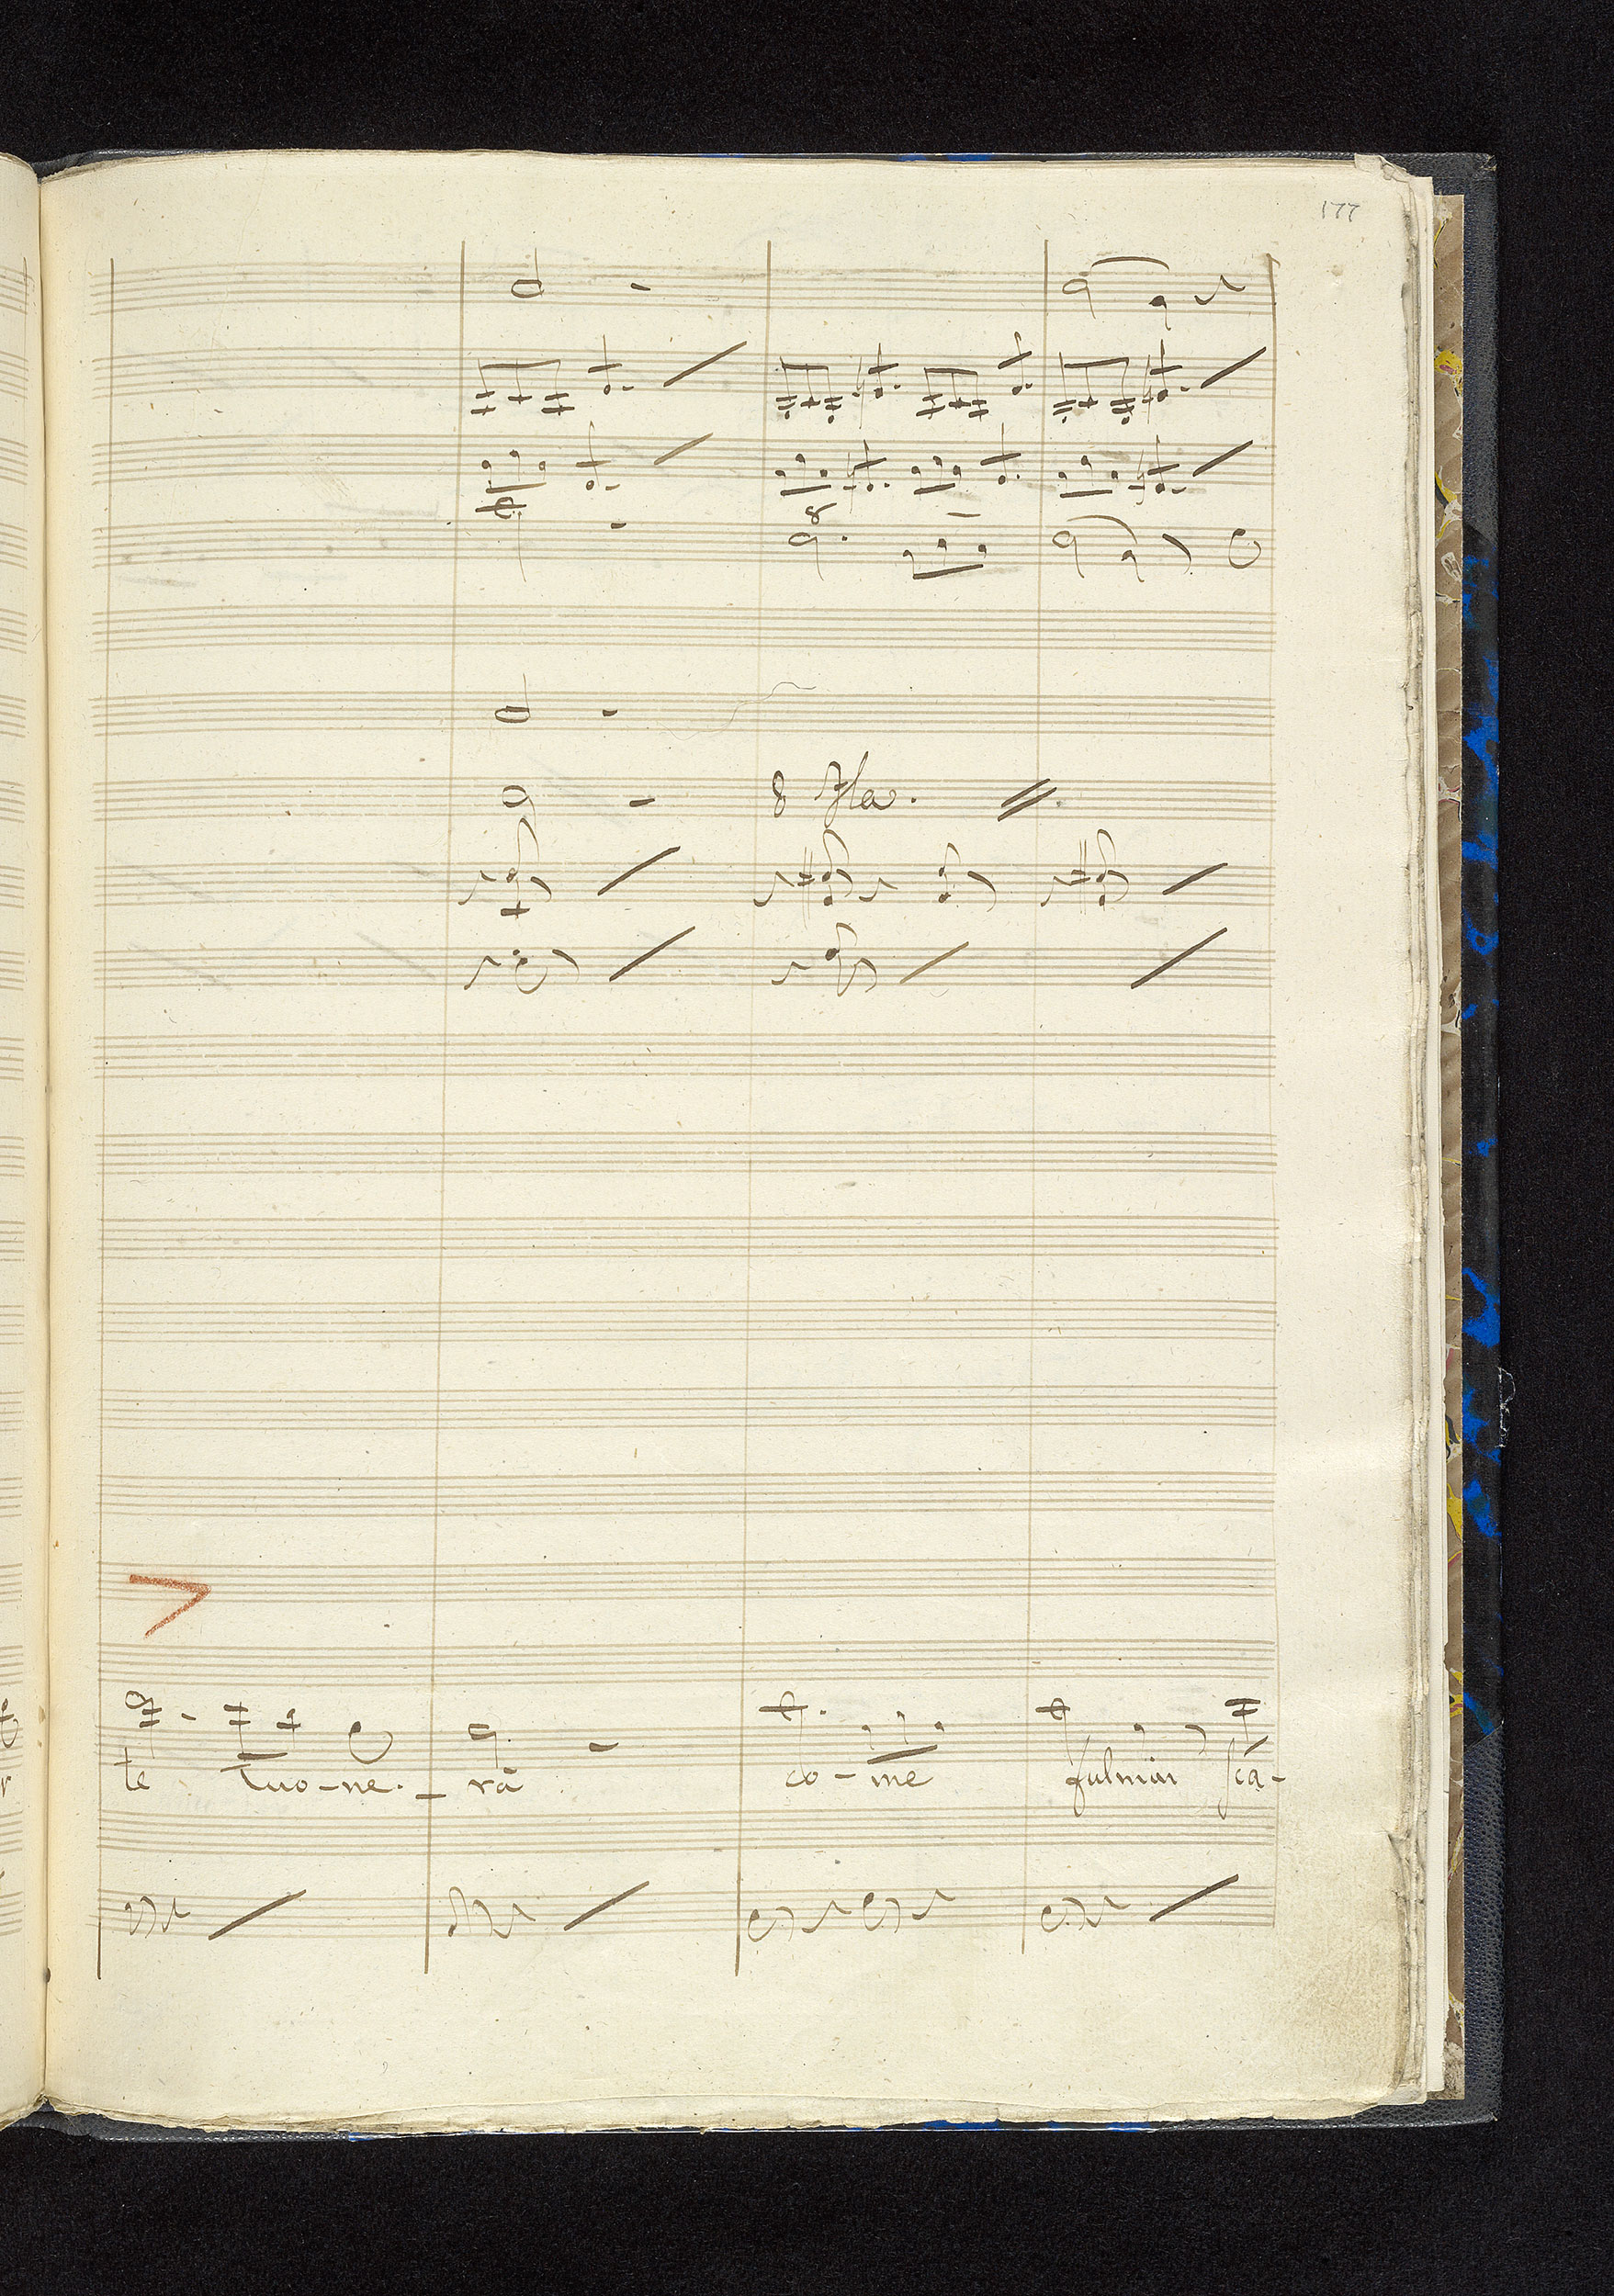 177
8 Fla.
te tuo-ne-rà co-me fulmin sca-